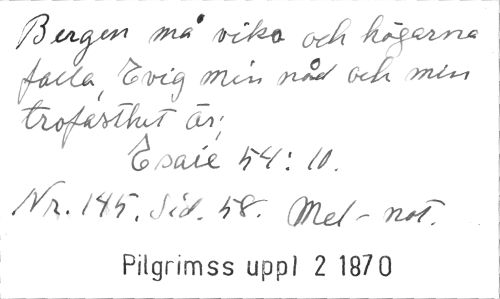 Bergen må vika och högarna
falla, Evig min nåd och min
trofasthet är;
Esaie 54: 10.
Nr. 145. Sid. 58. Mel-not.
Pilgrimss uppl 2 1870